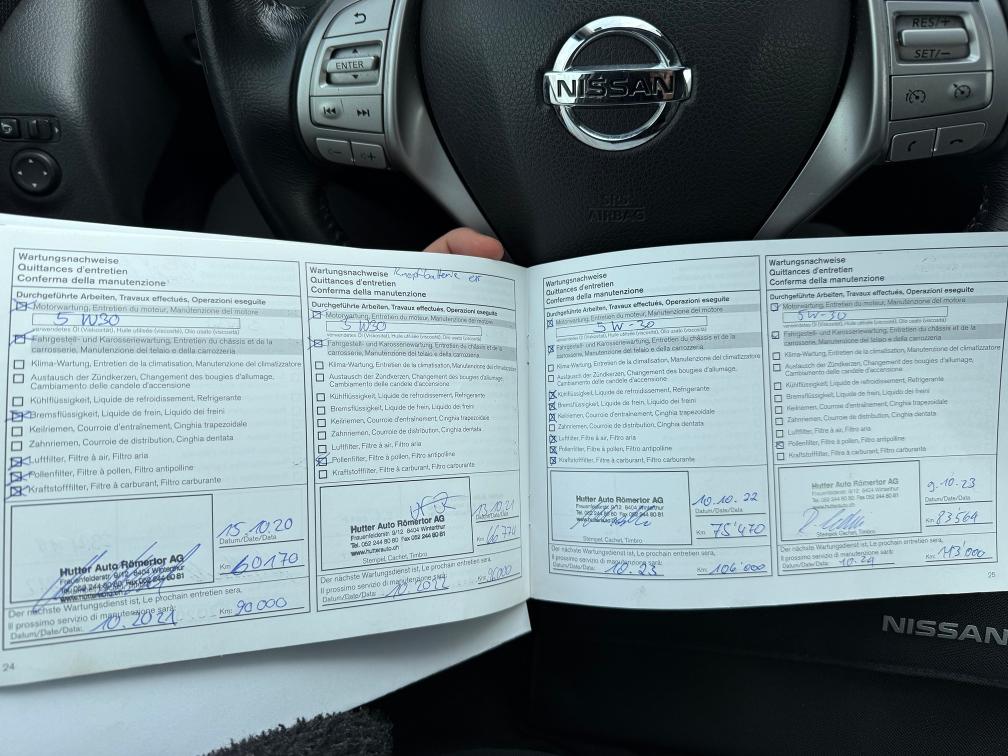 ENTER
RES/+
SET/−
NISSAN
SRS
AIRBAG
Wartungsnachweise
Quittances d'entretien
Conferma della manutenzione
Durchgeführte Arbeiten, Travaux effectués, Operazioni eseguite
Motorwartung, Entretien du moteur, Manutenzione del motore
5 W30
verwendetes Öl (Viskosität), Huile utilisée (viscosité), Olio usato (viscosità)
Fahrgestell- und Karosseriewartung, Entretien du châssis et de la
carrosserie, Manutenzione del telaio e della carrozzeria
Klima-Wartung, Entretien de la climatisation, Manutenzione del climatizzatore
Austausch der Zündkerzen, Changement des bougies d'allumage,
Cambiamento delle candele d'accensione
Kühlflüssigkeit, Liquide de refroidissement, Refrigerante
Bremsflüssigkeit, Liquide de frein, Liquido dei freini
Keilriemen, Courroie d'entraînement, Cinghia trapezoidale
Zahnriemen, Courroie de distribution, Cinghia dentata
Luftfilter, Filtre à air, Filtro aria
Pollenfilter, Filtre à pollen, Filtro antipolline
Kraftstofffilter, Filtre à carburant, Filtro carburante
Hutter Auto Römertor AG
Frauenfelderstr. 9/12, 8404 Winterthur
Tel. 052 244 80 80 Fax 052 244 80 81
15.10.20
Datum/Date/Data:
Km: 60170
Der nächste Wartungsdienst ist, Le prochain entretien sera,
Il prossimo servizio di manutenzione sarà:
Datum/Date/Data: 10.2021 Km: 90 000
24
Wartungsnachweise
Quittances d'entretien
Conferma della manutenzione
Durchgeführte Arbeiten, Travaux effectués, Operazioni eseguite
Motorwartung, Entretien du moteur, Manutenzione del motore
5 W30
verwendetes Öl (Viskosität), Huile utilisée (viscosité), Olio usato (viscosità)
Fahrgestell- und Karosseriewartung, Entretien du châssis et de la
carrosserie, Manutenzione del telaio e della carrozzeria
Klima-Wartung, Entretien de la climatisation, Manutenzione del climatizzatore
Austausch der Zündkerzen, Changement des bougies d'allumage,
Cambiamento delle candele d'accensione
Kühlflüssigkeit, Liquide de refroidissement, Refrigerante
Bremsflüssigkeit, Liquide de frein, Liquido dei freini
Keilriemen, Courroie d'entraînement, Cinghia trapezoidale
Zahnriemen, Courroie de distribution, Cinghia dentata
Luftfilter, Filtre à air, Filtro aria
Pollenfilter, Filtre à pollen, Filtro antipolline
Kraftstofffilter, Filtre à carburant, Filtro carburante
Hutter Auto Römertor AG
Frauenfelderstr. 9/12, 8404 Winterthur
Tel. 052 244 80 80 Fax 052 244 80 81
www.hutterauto.ch
Stempel, Cachet, Timbro
13.10.21
Datum/Date/Data:
Km:
Der nächste Wartungsdienst ist, Le prochain entretien sera,
Il prossimo servizio di manutenzione sarà:
Datum/Date/Data: 10.2022 Km:
Wartungsnachweise
Quittances d'entretien
Conferma della manutenzione
Durchgeführte Arbeiten, Travaux effectués, Operazioni eseguite
Motorwartung, Entretien du moteur, Manutenzione del motore
5W-30
verwendetes Öl (Viskosität), Huile utilisée (viscosité), Olio usato (viscosità)
Fahrgestell- und Karosseriewartung, Entretien du châssis et de la
carrosserie, Manutenzione del telaio e della carrozzeria
Klima-Wartung, Entretien de la climatisation, Manutenzione del climatizzatore
Austausch der Zündkerzen, Changement des bougies d'allumage,
Cambiamento delle candele d'accensione
Kühlflüssigkeit, Liquide de refroidissement, Refrigerante
Bremsflüssigkeit, Liquide de frein, Liquido dei freini
Keilriemen, Courroie d'entraînement, Cinghia trapezoidale
Zahnriemen, Courroie de distribution, Cinghia dentata
Luftfilter, Filtre à air, Filtro aria
Pollenfilter, Filtre à pollen, Filtro antipolline
Kraftstofffilter, Filtre à carburant, Filtro carburante
Hutter Auto Römertor AG
Frauenfelderstr. 9/12, 8404 Winterthur
Tel. 052 244 80 80 Fax 052 244 80 81
Stempel, Cachet, Timbro
10.10.22
Datum/Date/Data:
Km: 75'470
Der nächste Wartungsdienst ist, Le prochain entretien sera,
Il prossimo servizio di manutenzione sarà:
Datum/Date/Data: 10.23 Km: 106'000
Wartungsnachweise
Quittances d'entretien
Conferma della manutenzione
Durchgeführte Arbeiten, Travaux effectués, Operazioni eseguite
Motorwartung, Entretien du moteur, Manutenzione del motore
5W-30
verwendetes Öl (Viskosität), Huile utilisée (viscosité), Olio usato (viscosità)
Fahrgestell- und Karosseriewartung, Entretien du châssis et de la
carrosserie, Manutenzione del telaio e della carrozzeria
Klima-Wartung, Entretien de la climatisation, Manutenzione del climatizzatore
Austausch der Zündkerzen, Changement des bougies d'allumage,
Cambiamento delle candele d'accensione
Kühlflüssigkeit, Liquide de refroidissement, Refrigerante
Bremsflüssigkeit, Liquide de frein, Liquido dei freini
Keilriemen, Courroie d'entraînement, Cinghia trapezoidale
Zahnriemen, Courroie de distribution, Cinghia dentata
Luftfilter, Filtre à air, Filtro aria
Pollenfilter, Filtre à pollen, Filtro antipolline
Kraftstofffilter, Filtre à carburant, Filtro carburante
Hutter Auto Römertor AG
Frauenfelderstr. 9/12, 8404 Winterthur
Tel. 052 244 80 80 Fax 052 244 80 81
Stempel, Cachet, Timbro
9.10.23
Datum/Date/Data:
Km: 83564
Der nächste Wartungsdienst ist, Le prochain entretien sera,
Il prossimo servizio di manutenzione sarà:
Datum/Date/Data: 10.24 Km: 113'000
25
NISSAN